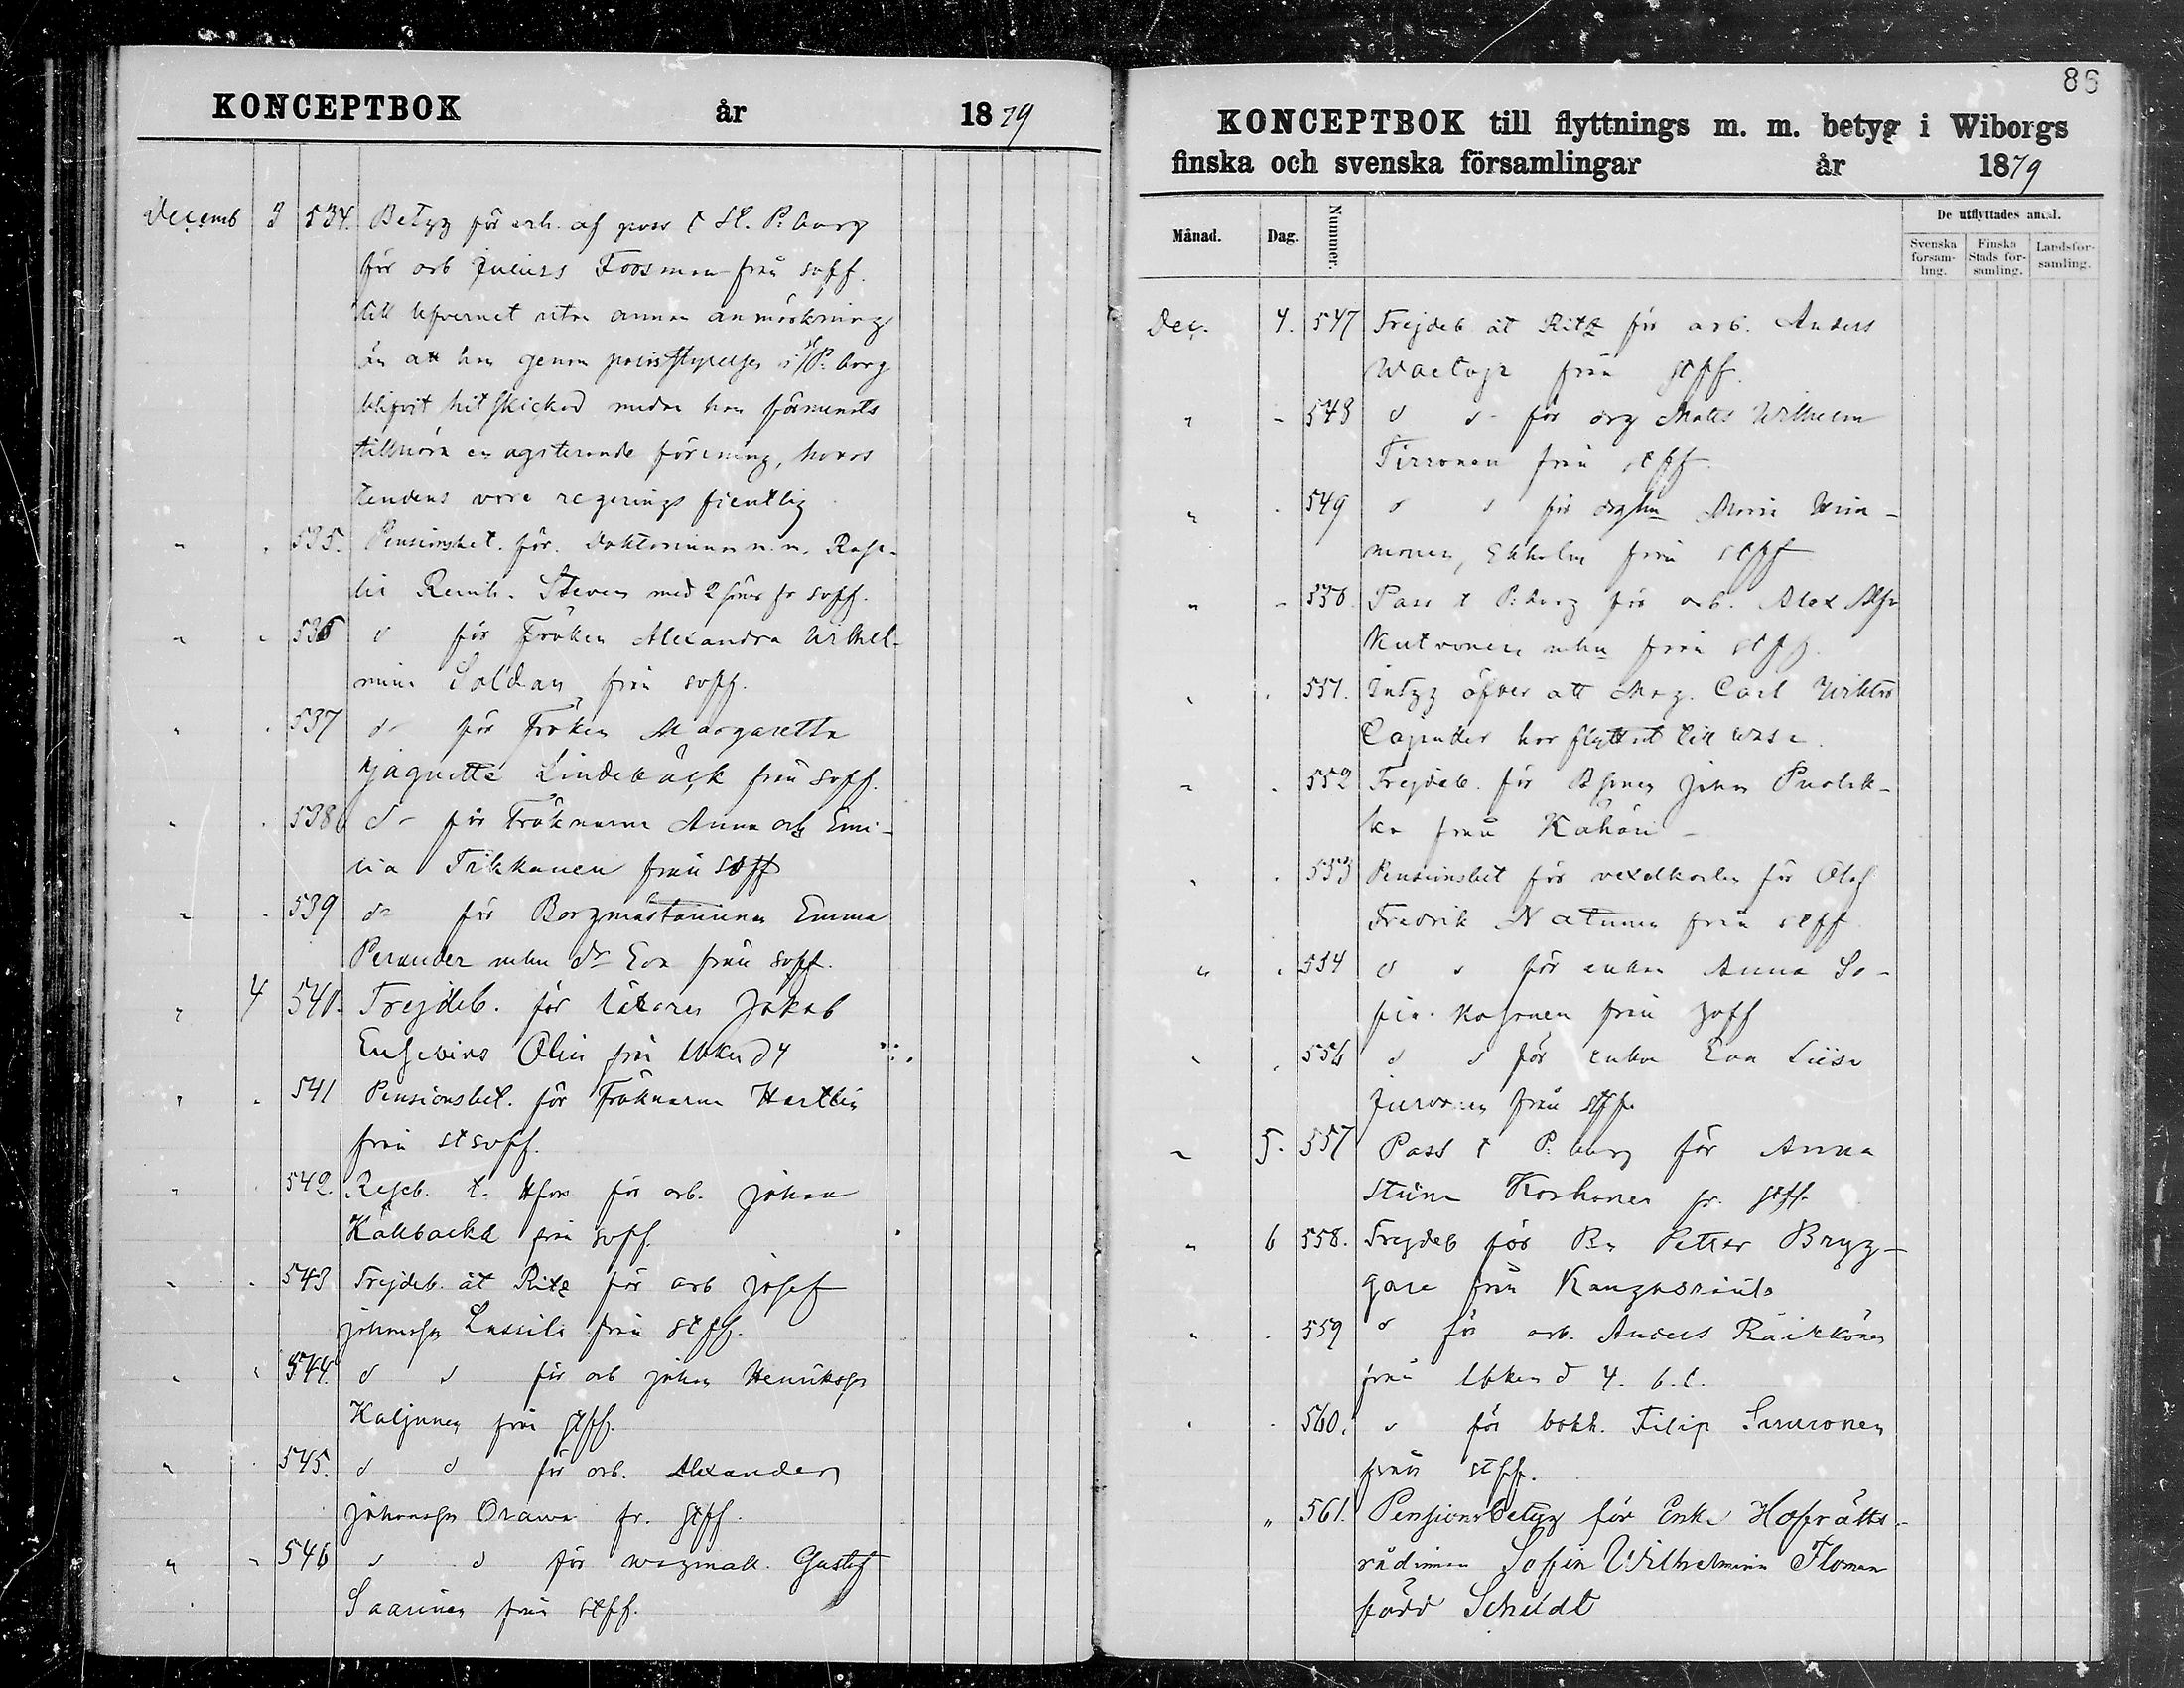 KONCEPTBOK år 1879
Decemb 3 534. Betyg för erh. af pass t St. P:borg
för arb Julius Foosman från soff.
till lefvernet utan annan anmärkning
än att han genom polisstyrelsen i St P:borg
blifvit hitskickad medan han förments
tillhöra en agiterande förening, hvars
tendens vore regerings fientlig
" . 535. Pensionsbet. för Doktorinnan
Reinh. Steven med 2 söner fr soff.
" " 536 d för Fröken Alexandra Wilhel-
mina Soldan från soff.
" . 537 do för Fröken Margaretta
Jaquette Lindebäck från soff.
" . 538 do för Fröknarna Anna och Emi-
lia Tikkanen från soff
" . 539 do för Borgmästarinnan Emma
Perander från soff.
" 4 540. Frejdeb. för Läkaren Jakob
Eusebius Olin från
" . 541 Pensionsbet. för Fröknarna Hartlin
från stsoff.
" . 542. Reseb. t. Hfors för arb. Johan
Källbacka från soff.
" . 543 Frejdeb. åt Ritz för arb Josef
Johansson Lassila från stff.
" " 544. d d för arb Johan Henriksson
Kaljunen från stff.
" . 545. d d för arb. Alexander
Johansson Orawa fr. stff.
" " 546 d d för Gustaf
Saarinen från stff.
86
KONCEPTBOK till flyttnings m. m. betyg i Wiborgs
finska och svenska församlingar år 1879
Månad. Dag. Nummer. De utflyttades antal.
Svenska församling. Finska Stads församling. Landsförsamling.
Dec. 4. 547 Frejdeb åt Ritz för arb. Anders
från stff.
" - 548 d d för drg Matts Wilhelm
Tirronen från stff.
" . 549 d d för Maria
Ekholm från stff
" - 550. Pass t P:borg för arb. Alex
från stff.
" . 551. Intyg öfver att Mag. Carl Viktor
Cajander har flyttat till Wasa.
" . 552 Frejdeb. för Johan
från Kähäri -
" . 553 Pensionsbet för för Olof
Fredrik Natunen från stff
" . 554 d d för enkan Anna So-
fia från soff
" . 556 d d för enkan Eva Liisa
Jurvonen från stff.
" 5. 557 Pass t P:borg för Anna
Stiina Korhonen fr. stff.
" 6 558. Frejdeb för Petter Bryg-
gare från
" . 559 d för arb. Anders Räikkönen
från
" . 560. d för bokh. Filip
från stff.
" 561. Pensionsbetyg för Enke Hofrätts-
rådinnan Sofia Wilhelmina Floman
född Schildt